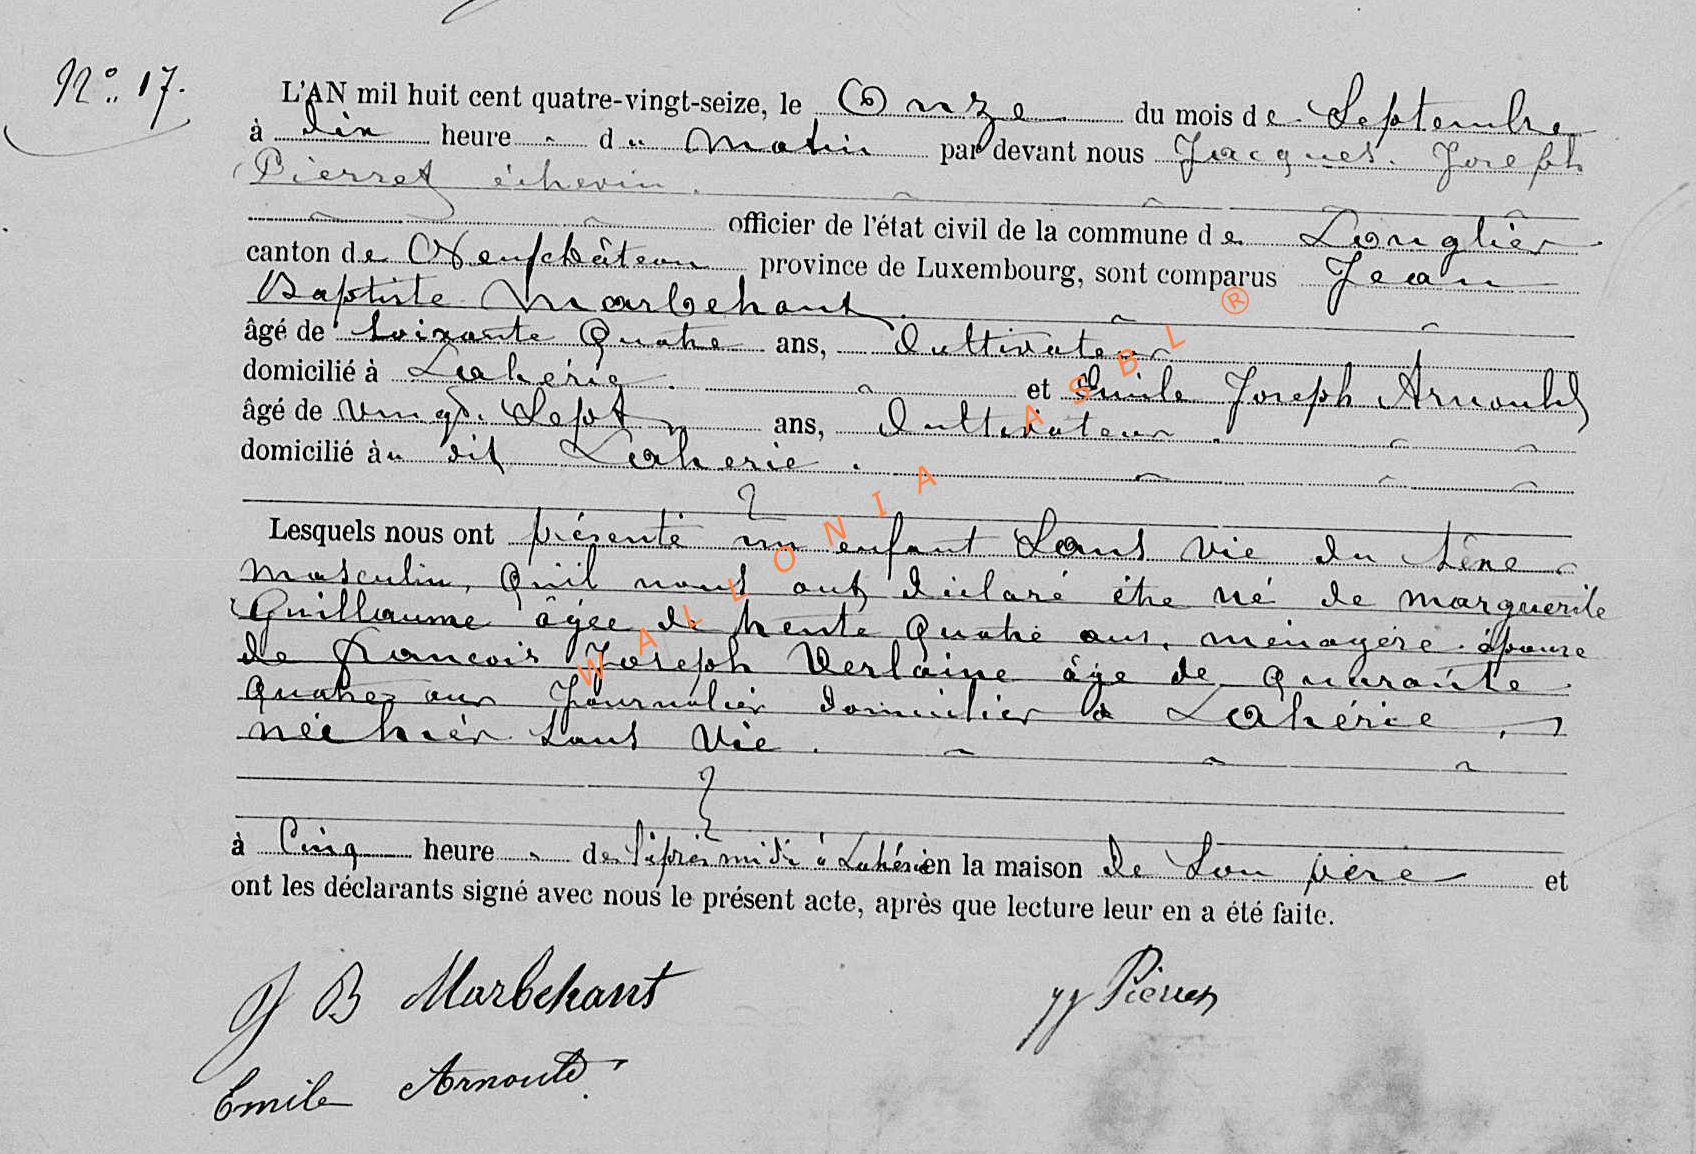 N° 17.
L'AN mil huit cent quatre-vingt-seize, le Onze du mois de Septembre
à dix heure du Matin par devant nous Jacques Joseph
Pierret échevin.
officier de l'état civil de la commune de Longlier
canton de Neufchâteau province de Luxembourg, sont comparus Jean
Baptiste Marbehant
âgé de soixante quatre ans, Cultivateur
domicilié à Lahérie. et Emile Joseph Arnould
âgé de vingt Sept ans, Cultivateur.
domicilié au dit Laherie.
Lesquels nous ont présenté un enfant Sans vie du sexe
masculin, qu'il nous ont déclaré être né de marguerite
Guillaume âgée de trente quatre ans, ménagère épouse
de francois Joseph Verlaine âgé de quarante
quatre ans Journalier domicilier à Lahérie,
née hier Sans Vie.
à Cinq heure de l'après midi à Lahérie en la maison de Son père et
ont les déclarants signé avec nous le présent acte, après que lecture leur en a été faite.
J B Marbehant
JJ Pierret
Emile Arnould
WALLONIA ASBL ®